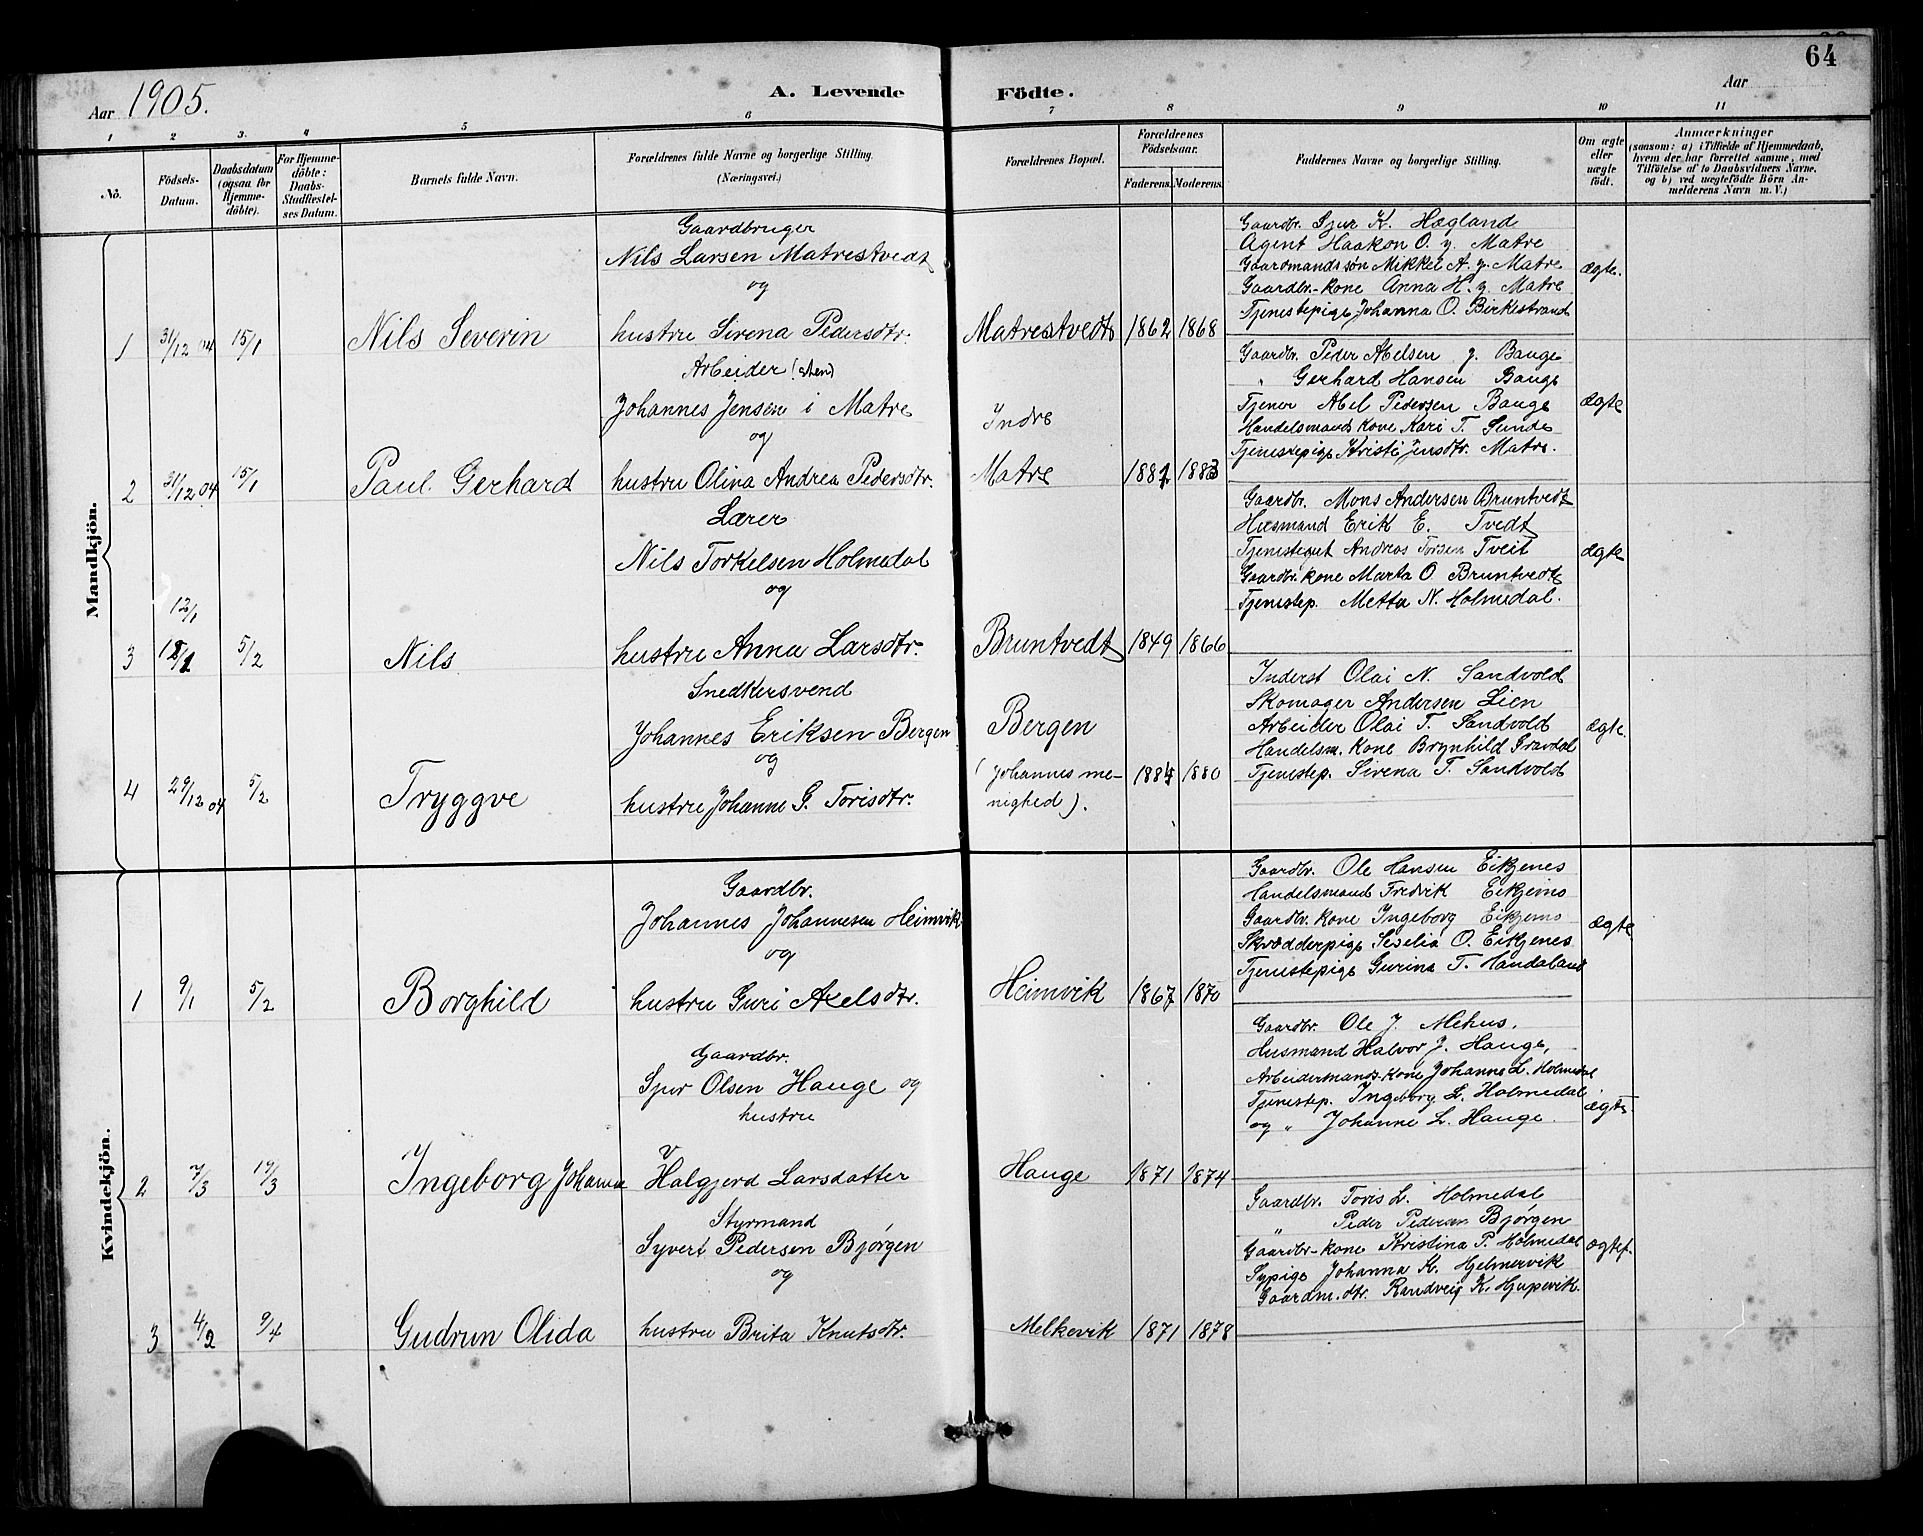 64
Aar 1905.
A. Levende Födte.
Aar
1 2 3. 4 5 6 7 8 9 10 11
No.
Födsels-
Datum.
Daabsdatum
(ogsaa for
Hjemme-
döbte).
For Hjemme-
döbte:
Daabs-
Stadfæstel-
ses Datum.
Barnets fulde Navn.
Forældrenes fulde Navne og borgerlige Stilling.
(Næringsvei.)
Forældrenes Bopæl.
Forældrenes
Födselsaar.
Faderens. Moderens.
Faddernes Navne og borgerlige Stilling.
Om ægte
eller
uægte
födt.
Anmærkninger
(saasom: a) i Tilfælde af Hjemmedaab,
hvem der har forrettet samme, med
Tilföielse af to Daabsvidners Navne,
og b) ved uægtefödte Börn An-
melderens Navn m. V.)
Mandkjön.
1 31/12 04 15/1 Nils Severin
Gaardbruger
Nils Larsen Matrestvedt
og
hustru Sirena Pedersdtr.
Matrestvedt 1862 1868
Gaardbr. Sjur K. Hægland
Agent Haakon O. y. Matre
Gaardmandssön Mikkel A. y. Matre
Gaardbr.-kone Anna H. y. Matre
Tjenestepige Johanna O. Birkestrand
ægte.
2 31/12 04 15/1 Paul Gerhard
Arbeider
Johannes Jensen i Matre
og
hustru Olina Andrea Pedersdtr.
Indre
Matre 1883
Gaardbr. Peder Abelsen y. Bauge
" Gerhard Hansen Bauge
Tjener Abel Pedersen Bauge
Handelsmands kone Kari T. Sunde
Tjenestepige Kristi Jensdtr. Matre.
ægte
3 12/1 5/2 Nils
Lærer
Nils Torkelsen Holmedal
og
hustru Anna Larsdtr.
Bruntvedt 1849 1866
Gaardbr. Mons Andersen Bruntvedt
Husmand Erik E. Tvedt
Tjenestegut Andreas Torsen Tveit
Gaardbr. kone Marta O. Bruntvedt
Tjenestep. Metta N. Holmedal.
ægte
4 29/12 04 5/2 Tryggve
Snedkersvend
Johannes Eriksen Bergen
og
hustru Johanne G. Torisdtr.
Bergen
(Johannes me-
nighed). 1880
Inderst Olai N. Sandvold
Skomager Andersen Lien
Arbeider Olai T. Sandvold
Handelsm. kone Brynhild Gravdal
Tjenestep. Sirena T. Sandvold
ægte.
Kvindekjön.
1 9/1 5/2 Borghild
Gaardbr.
Johannes Johannesen Heimvik
og
hustru Guri Axelsdtr.
Heimvik 1867 1870
Gaardbr. Ole Hansen Eikjenes
Handelsmand Fredrik Eikjenes
Gaardbr. kone Ingeborg Eikjenes
Skrædderpige Sesilia O. Eikjenes
Tjenestepige Gurina T. Handaland
ægte
2 7/3 19/3 Ingeborg Johanne
Gaardbr.
Sjur Olsen Hauge og
hustru
Halgjerd Larsdatter
Hauge 1871 1874
Gaardbr. Ole J. Mehus.
Husmand Halvor J. Hauge,
Arbeidermands-kone Johanne L. Holmedal
Tjenestep. Ingeborg L. Holmedal
og " Johanne L. Hauge.
ægte.
3 4/2 9/4 Gudrun Olida
Styrmand
Syvert Pedersen Bjørgen
og
hustru Brita Knutsdtr.
Melkevik 1871 1878
Gaardbr. Toris L. Holmedal
" Peder Pedersen Bjørgen
Gaardbr-kone Kristina P. Holmedal
Sypige Johanna K. Hjelmervik
Gaardm.dtr. Randveig K. Hjupevik.
ægtef.